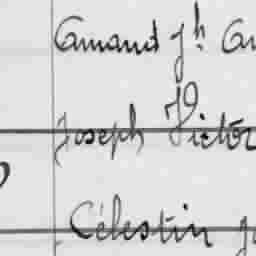 Amand Jh
Joseph Victor
Célestin